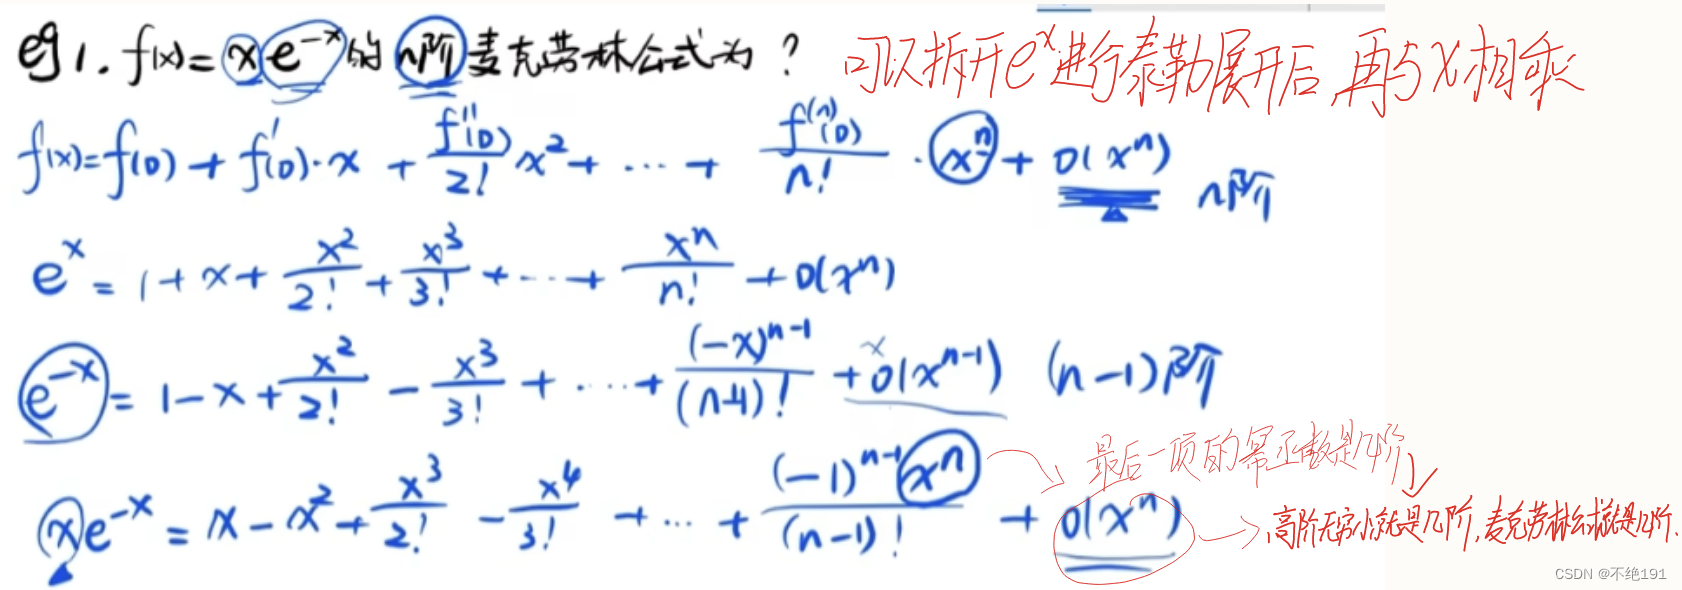 eg 1. f(x) = x e^{-x} 的 n阶 麦克劳林公式为 ?
可以拆开e^x进行泰勒展开后,再与x相乘
f(x) = f(0) + f'(0)·x + \frac{f''(0)}{2!} x^2 + ··· + \frac{f^{(n)}(0)}{n!} · x^n + o(x^n) n阶
e^x = 1 + x + \frac{x^2}{2!} + \frac{x^3}{3!} + ··· + \frac{x^n}{n!} + o(x^n)
e^{-x} = 1 - x + \frac{x^2}{2!} - \frac{x^3}{3!} + ··· + \frac{(-x)^{n-1}}{(n-1)!} + o(x^{n-1}) (n-1)阶
最后一项的幂函数是几阶
xe^{-x} = x - x^2 + \frac{x^3}{2!} - \frac{x^4}{3!} + ··· + \frac{(-1)^{n-1} x^n}{(n-1)!} + o(x^n)
高阶无穷小就是几阶,麦克劳林公式就是几阶.
CSDN @不绝191